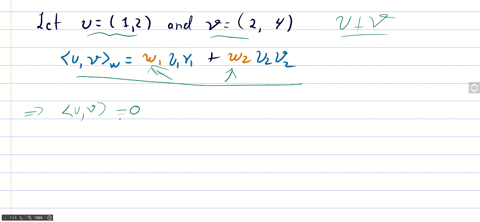 Let u = (1,2) and v = (2, 4) U ⊥ v
<u,v>w = w1 U1 V1 + w2 U2 V2
=> <u,v> = 0